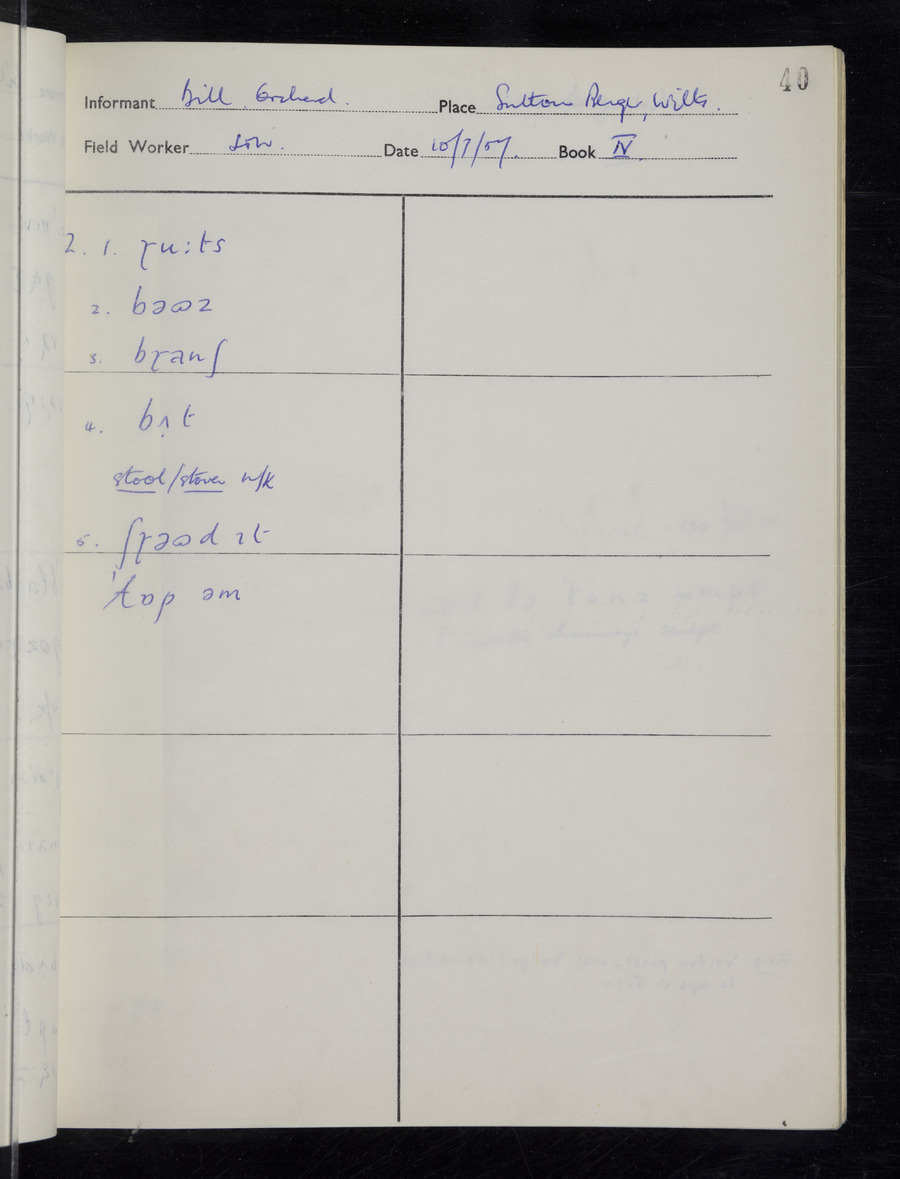 40
Informant Bill Orchard. Place Sutton Benger, Wilts.
Field Worker Date 10/7/57. Book IV.
2. 1. ɽuːts
2. bəʊz
3. bɽanʃ
4. bʌ̣t
stool/stover n/k
5. ʃɽəʊd ɪt
ˈtɒp əm